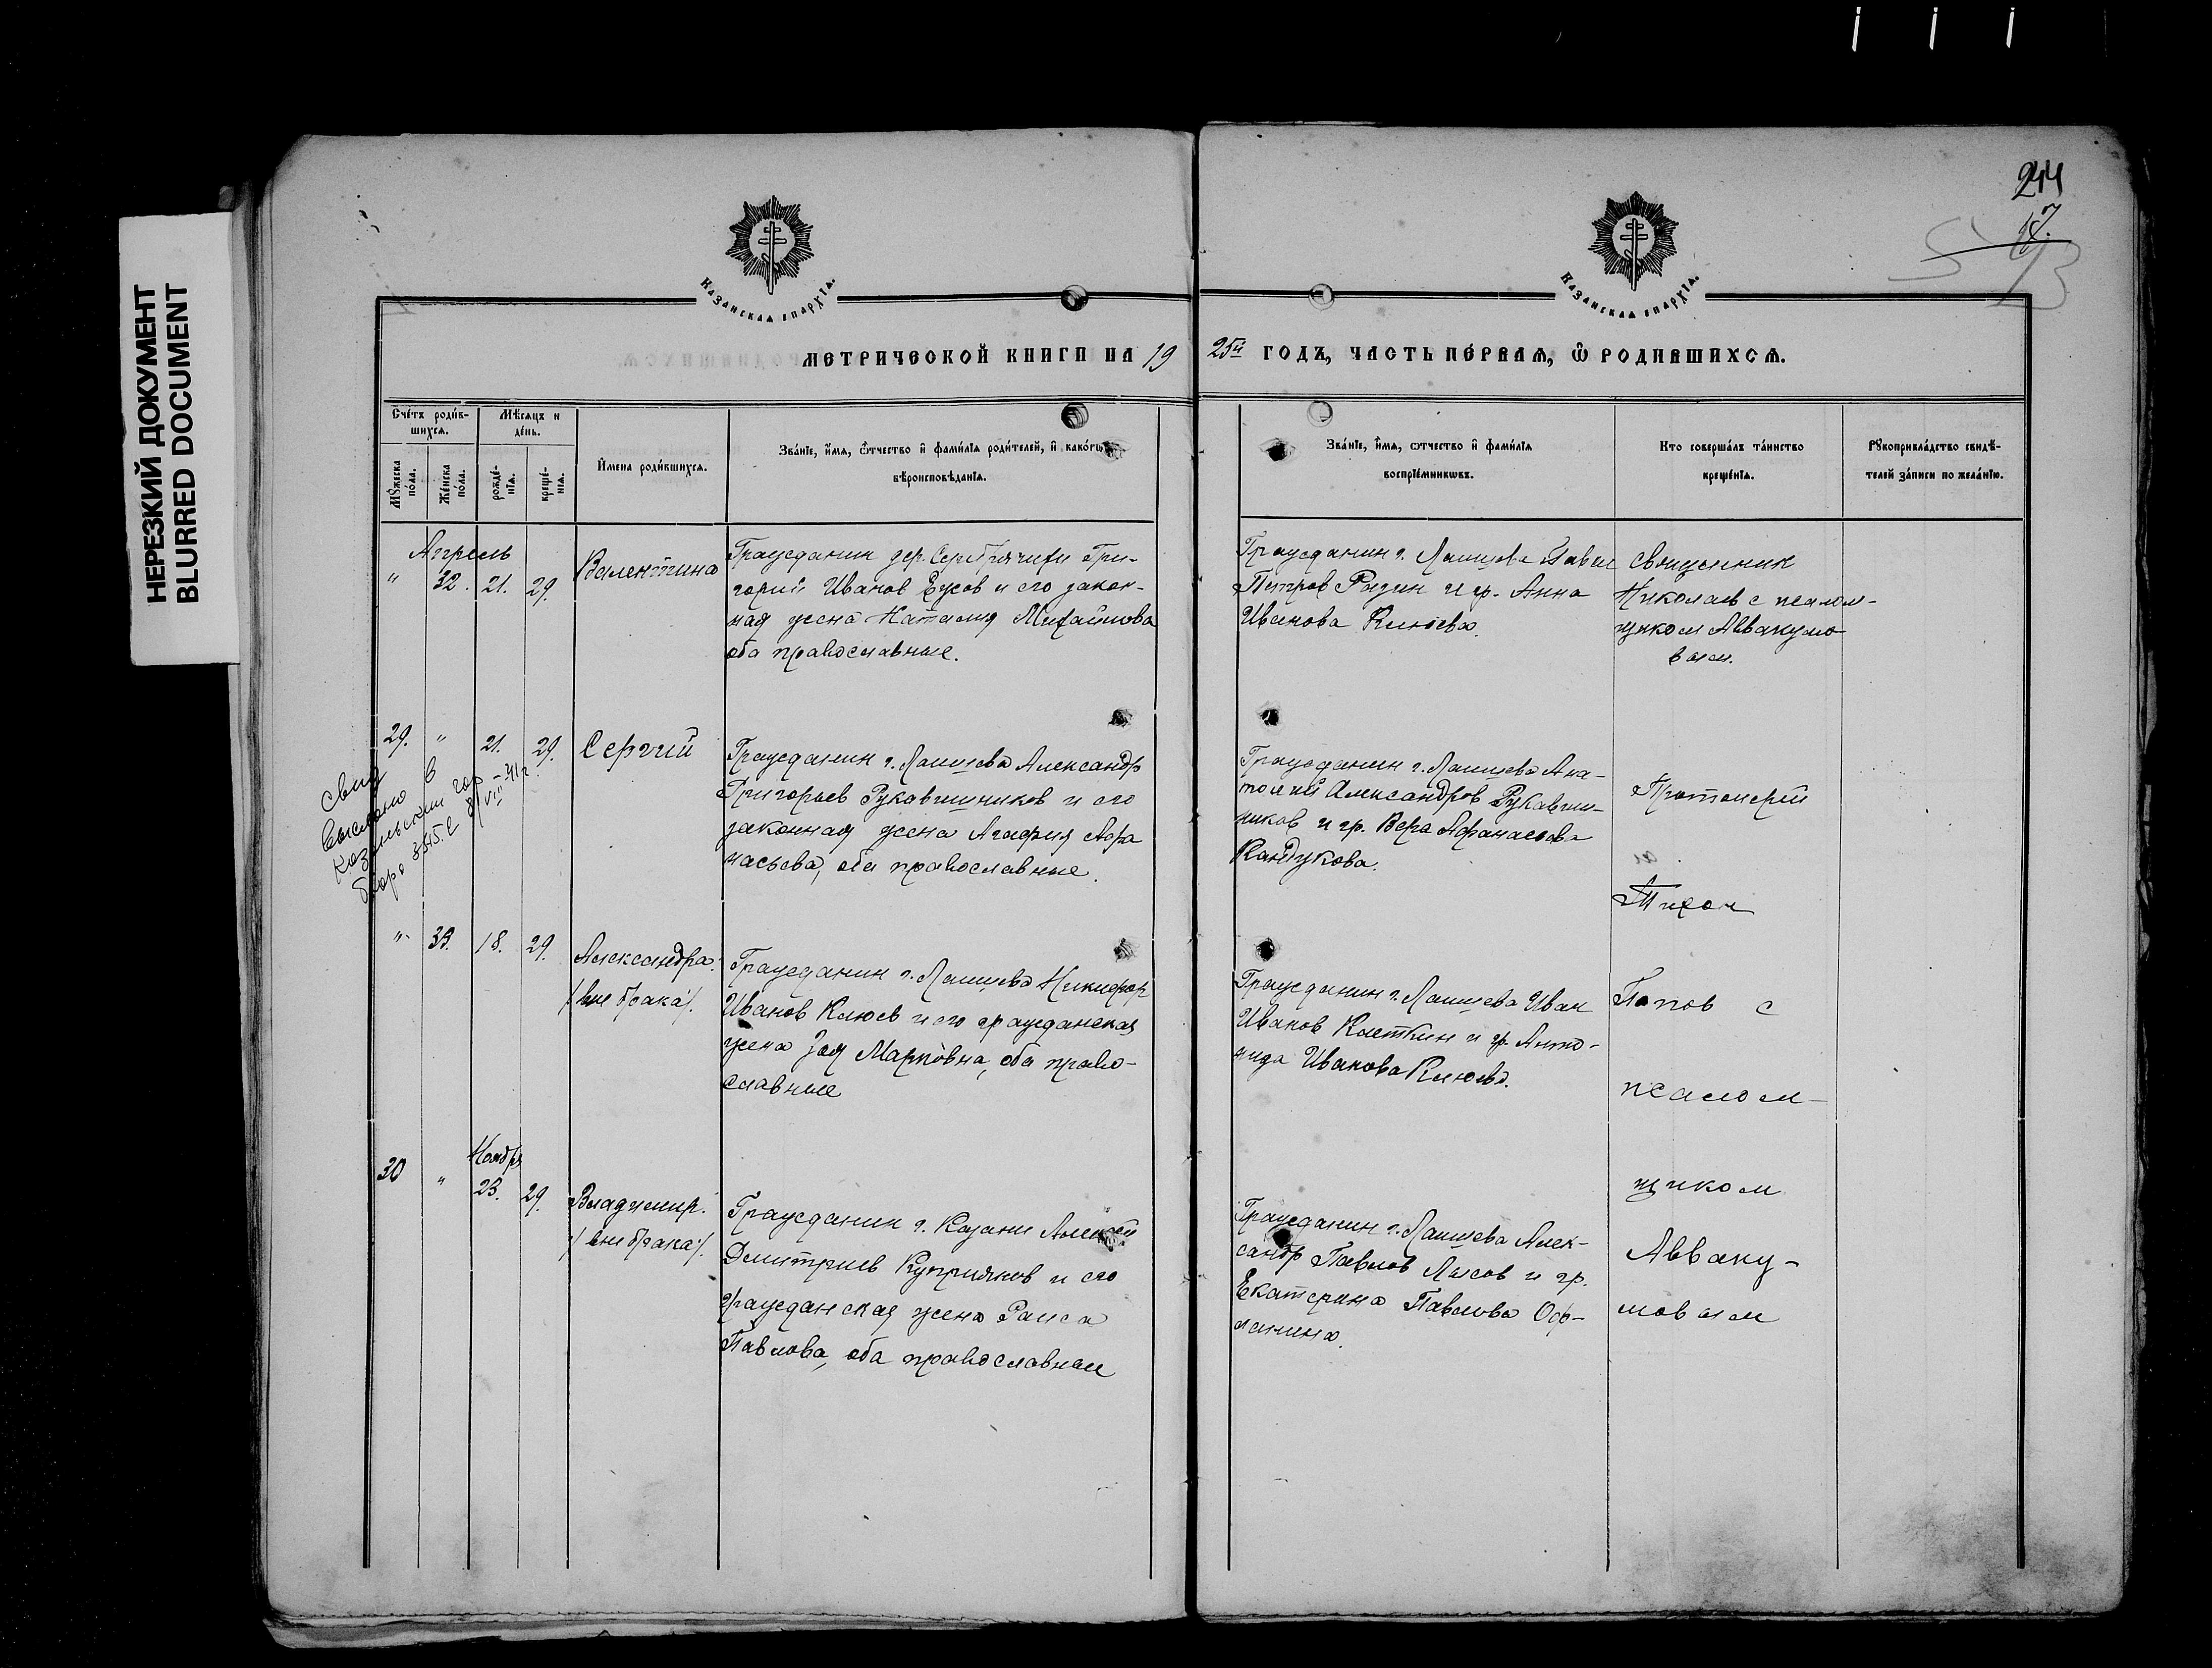 НЕРЕЗКИЙ ДОКУМЕНТ
BLURRED DOCUMENT
244
Казанская епархїѧ.
Казанская епархїѧ.
МЕТРИЧЕСКОЙ КНИГИ НА 1925й ГОДЪ, ЧАСТЬ ПЕ́РВАѦ, Ѿ РОДИВШИХСѦ.
Сче́тъ роди́вшихсѧ.
Мѣ́сѧцъ и де́нь.
Мꙋ́жеска по́ла.
Же́нска по́ла.
рожде́нїѧ.
креще́нїѧ.
И҆мена роди́вшихсѧ.
Зва́нїе, и҆́мѧ, ѻ҆́тчество и҆ фами́лїѧ роди́телей, и҆ како́гѡ
вѣроисповѣ́данїѧ.
Зва́нїе, и҆́мѧ, ѻ҆́тчество и҆ фами́лїѧ
воспрїе́мникѡвъ.
Кто соверша́лъ та́инство
креще́нїѧ.
Рꙋкоприкла́дство свидѣ́-
телей за́писи по жела́нїю.
Апрель
" 32. 21. 29.
Валентина
Гражданин дер. Серебрячихи Гри-
горий Иванов Ежов и его закон-
ная жена Наталия Михайлова
оба православные.
Гражданин г. Лаишева Павел
Петров Рызин и гр. Анна
Иванова Клюева.
Священник
Николаев с псалом-
щиком Аввакумо-
вым.
29. " 21. 29.
Сергий
Гражданин г. Лаишева Александр
Григорьев Рукавишников и его
законная жена Агафия Афа
насьева, оба православные.
Гражданин г. Лаишева Ана-
толий Александров Рукавиш-
ников и гр. Вера Афанасьева
Кандукова.
Протоиерей
Тихон
Попов с
псалом-
щиком
Авваку-
мовым
свид
выслано в
гор
бюро
" 33. 18. 29.
Александра.
/вне брака/.
Гражданин г. Лаишева Никифор
Иванов Клюев и его гражданская
жена Зоя Марковна, оба право-
славные
Гражданин г. Лаишева Иван
Иванов Клеткин и гр. Анто-
нида Иванова Клюева.
Ноябрь
30 " 23. 29.
Владимир.
/вне брака/.
Гражданин г. Казани Алексей
Дмитриев Куприянов и его
гражданская жена Раиса
Павлова, оба православные
Гражданин г. Лаишева Алек-
сандр Павлов Лысов и гр.
Екатерина Павлова Оф-